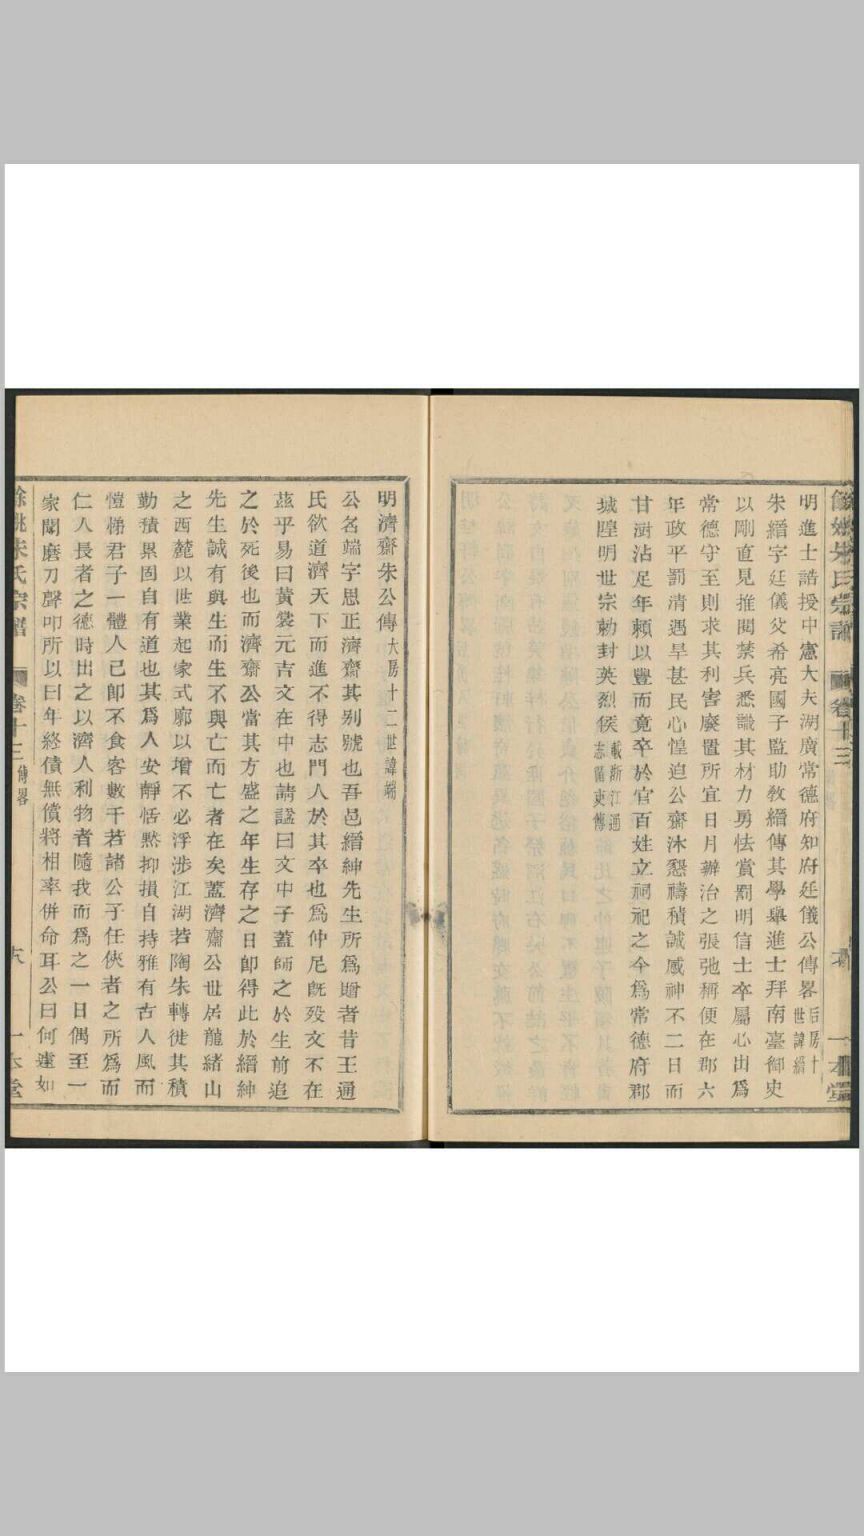 餘姚朱氏宗譜 卷十三 一本堂
明進士誥授中憲大夫湖廣常德府知府廷儀公傳畧 后房十世諱縉
朱縉字廷儀父希亮國子監助教縉傳其學舉進士拜南臺御史
以剛直見推閱禁兵悉識其材力勇怯賞罰明信士卒屬心出爲
常德守至則求其利害廢置所宜日月辦治之張弛稱便在郡六
年政平罰清遇旱甚民心惶迫公齋沐懇禱積誠感神不二日而
甘澍沾足年賴以豐而竟卒於官百姓立祠祀之今爲常德府郡
城隍明世宗勅封英烈侯 載浙江通志循吏傳
明濟齋朱公傳 大房十二世諱端
公名端字思正濟齋其别號也吾邑縉紳先生所爲贈者昔王通
氏欲道濟天下而進不得志門人於其卒也爲仲尼旣歿文不在
茲乎易曰黃裳元吉文在中也請諡曰文中子蓋師之於生前追
之於死後也而濟齋公當其方盛之年生存之日卽得此於縉紳
先生誠有與生而生不與亡而亡者在矣蓋濟齋公世居龍緒山
之西麓以世業起家式廓以增不必浮涉江湖若陶朱轉徙其積
勤積累固自有道也其爲人安靜恬默抑損自持雅有古人風而
愷悌君子一體人己卽不食客數千若諸公子任俠者之所爲而
仁人長者之德時出之以濟人利物者隨我而爲之一日偶至一
家聞磨刀聲叩所以曰年終債無償將相率併命耳公曰何遽如
餘姚朱氏宗譜 卷十三 傳畧 一本堂